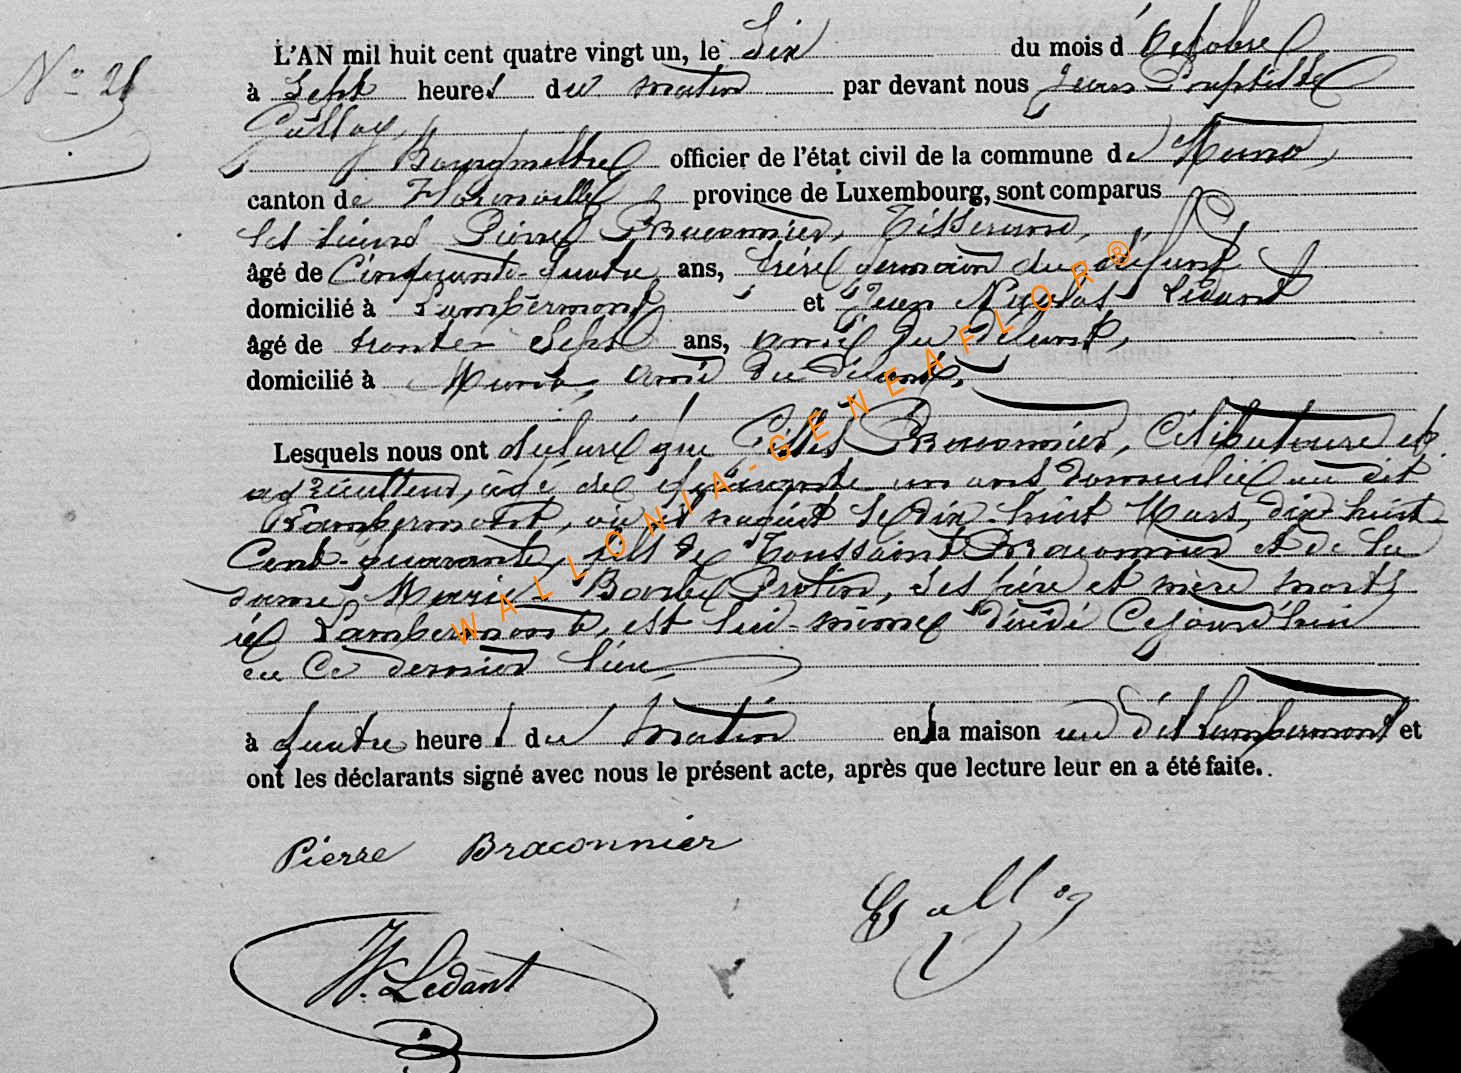 N° 21
L'AN mil huit cent quatre vingt un, le Six du mois d'Octobre
à Sept heures du matin par devant nous Jean Baptiste
Galloy,
Bourgmestre officier de l'état civil de la commune de Muno,
canton de Florenville province de Luxembourg, sont comparus
les sieurs Pierre Braconnier, Tisserand,
âgé de Cinquante-quatre ans, frère germain du défunt
domicilié à Lambermont et Jean Nicolas Lédant
âgé de trente Sept ans, ami du défunt,
domicilié à Muno, ami du défunt,
Lesquels nous ont déclaré que Gilles Braconnier, Célibataire et
agriculteur, âgé de quarante un ans domicilié au dit
Lambermont, où il naquit le dix-huit Mars, dix huit
Cent-quarante, fils de Toussaint Braconnier et de la
dame Marie-Barbe Protin, ses père et mère morts
à Lambermont, est lui-même décédé Cejourd'hui
en Ce dernier lieu
à quatre heures du matin en la maison au dit Lambermont et
ont les déclarants signé avec nous le présent acte, après que lecture leur en a été faite.
Pierre Braconnier
Galloy
N. Lédant
WALLONIA-GENEAFLOR®